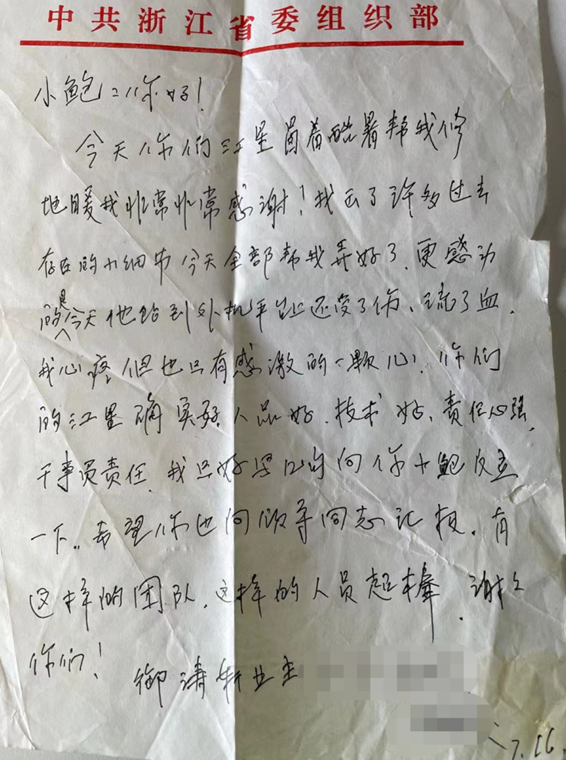 中共浙江省委组织部
小鲍:你好!
今天你们江星冒着酷暑帮我修
地暖我非常非常感谢!我云了许多过去
存在的小细节今天全部帮我弄好了.更感动
的是今天他钻到外机平台上还受了伤、流了血.
我心疼但也只有感激的一颗心!你们
的江星确实好人品好.技术好、责任心强,
干事负责任.我只好用口向你小鲍反应
一下..希望你也向领导同志汇报.有
这样的团队.这样的人员超棒.谢谢
你们!
御涛轩业主
7.16.